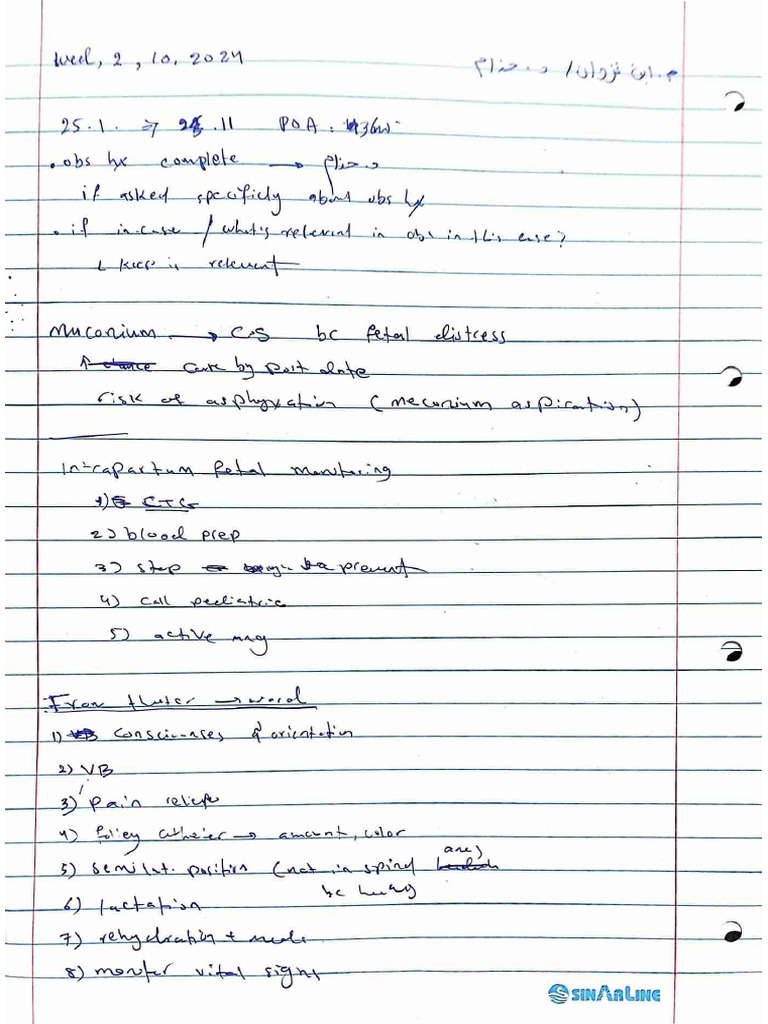 Wed, 2, 10, 2024
م. ابن نزوان / د. حذام
25.1. → 25.11 POA: 36w
. obs hx complete → د. حذام
if asked specificly about obs hx
. if in case / what's relevent in obs in this case?
↳ keep it relevent
Muconium → C.S bc fetal distress
↑ care by post date
risk of asphyxation (meconium aspiration)
Intrapartum fetal monitoring
1) CTG
2) blood prep
3) stop prevent
4) call pediatric
5) active mng
From thater → word
1) Consciounses & orientation
2) VB
3) Pain relief
4) folley catheter → amount, color
5) semilat. position (not in spinal anes)
bc
6) lactation
7) rehydration + meds
8) moniter vital signs
SINARLINE